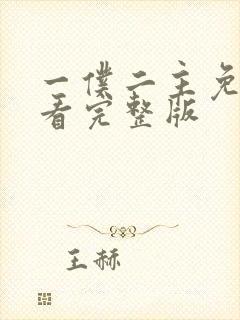 一僕二主免
看完整版
王赫